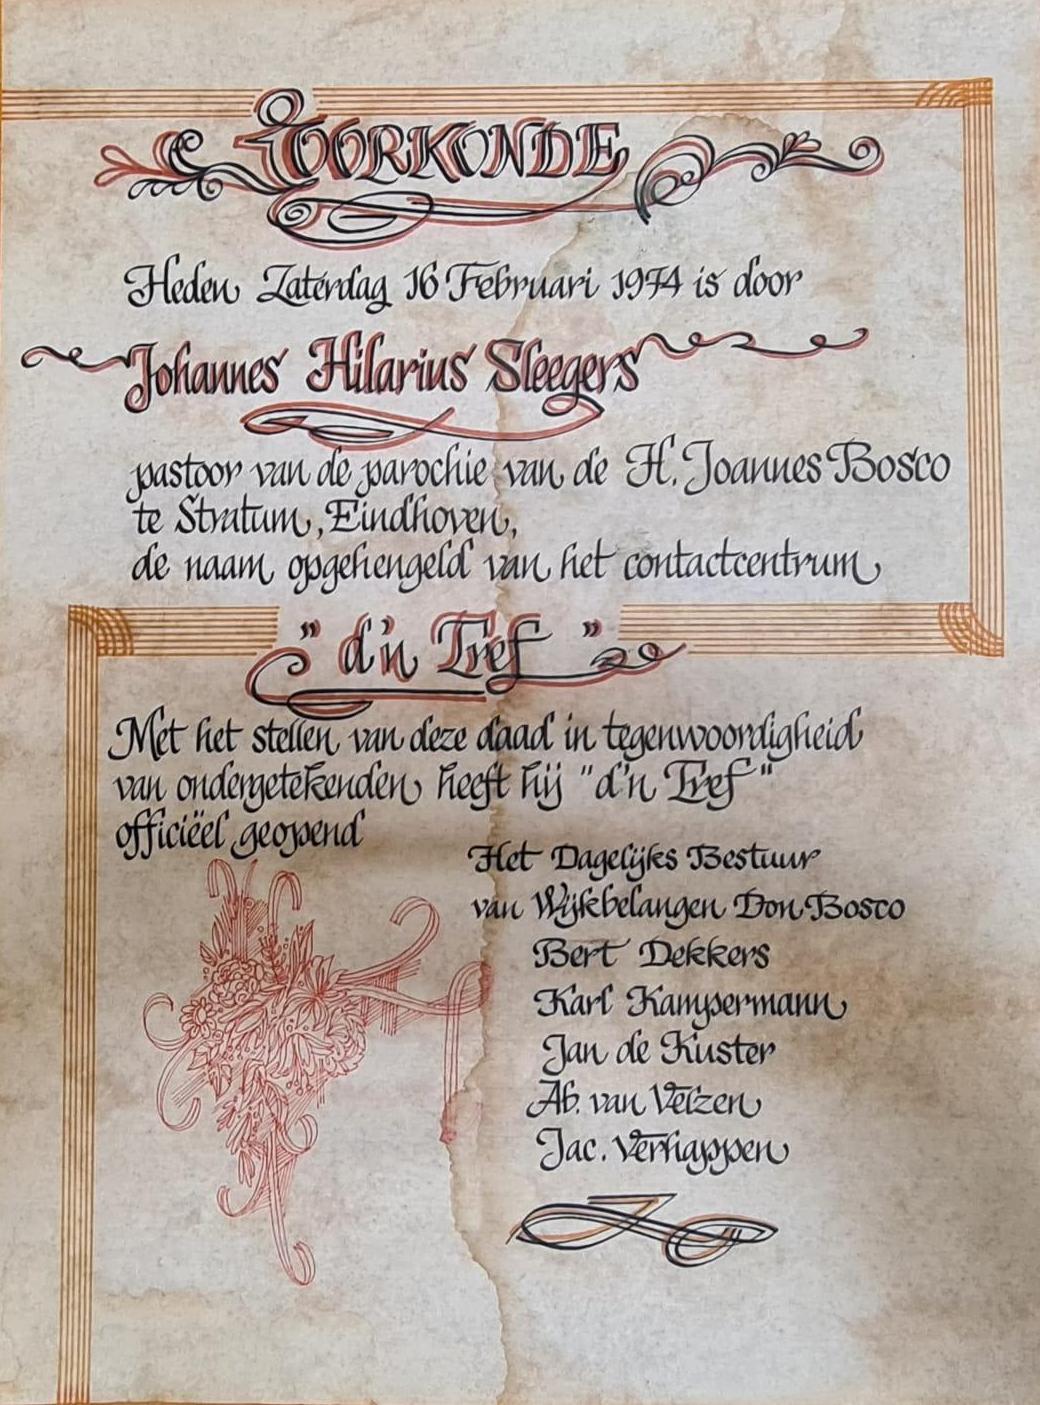 OORKONDE
Heden Zaterdag 16 Februari 1974 is door
Johannes Hilarius Sleegers
pastoor van de parochie van de H. Joannes Bosco
te Stratum, Eindhoven,
de naam opgehengeld van het contactcentrum
" d'n Tref "
Met het stellen van deze daad in tegenwoordigheid
van ondergetekenden heeft hij "d'n Tref"
officiëel geopend
Het Dagelijks Bestuur
van Wijkbelangen Don Bosco
Bert Dekkers
Karl Kampermann
Jan de Kuster
Ab. van Velzen
Jac. Verhappen